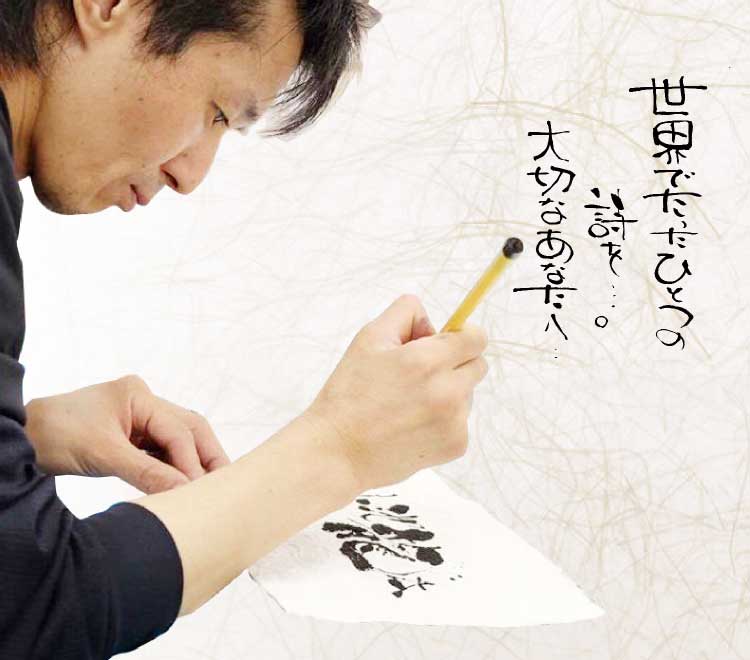 世界でたったひとつの
詩を…。
大切なあなたへ…